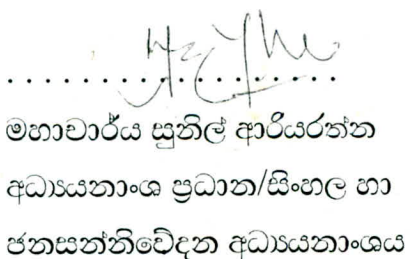 ....................
මහාචාර්ය සුනිල් ආරියරත්න
අධ්‍යයනාංශ ප්‍රධාන/සිංහල හා
ජනසන්නිවේදන අධ්‍යයනාංශය